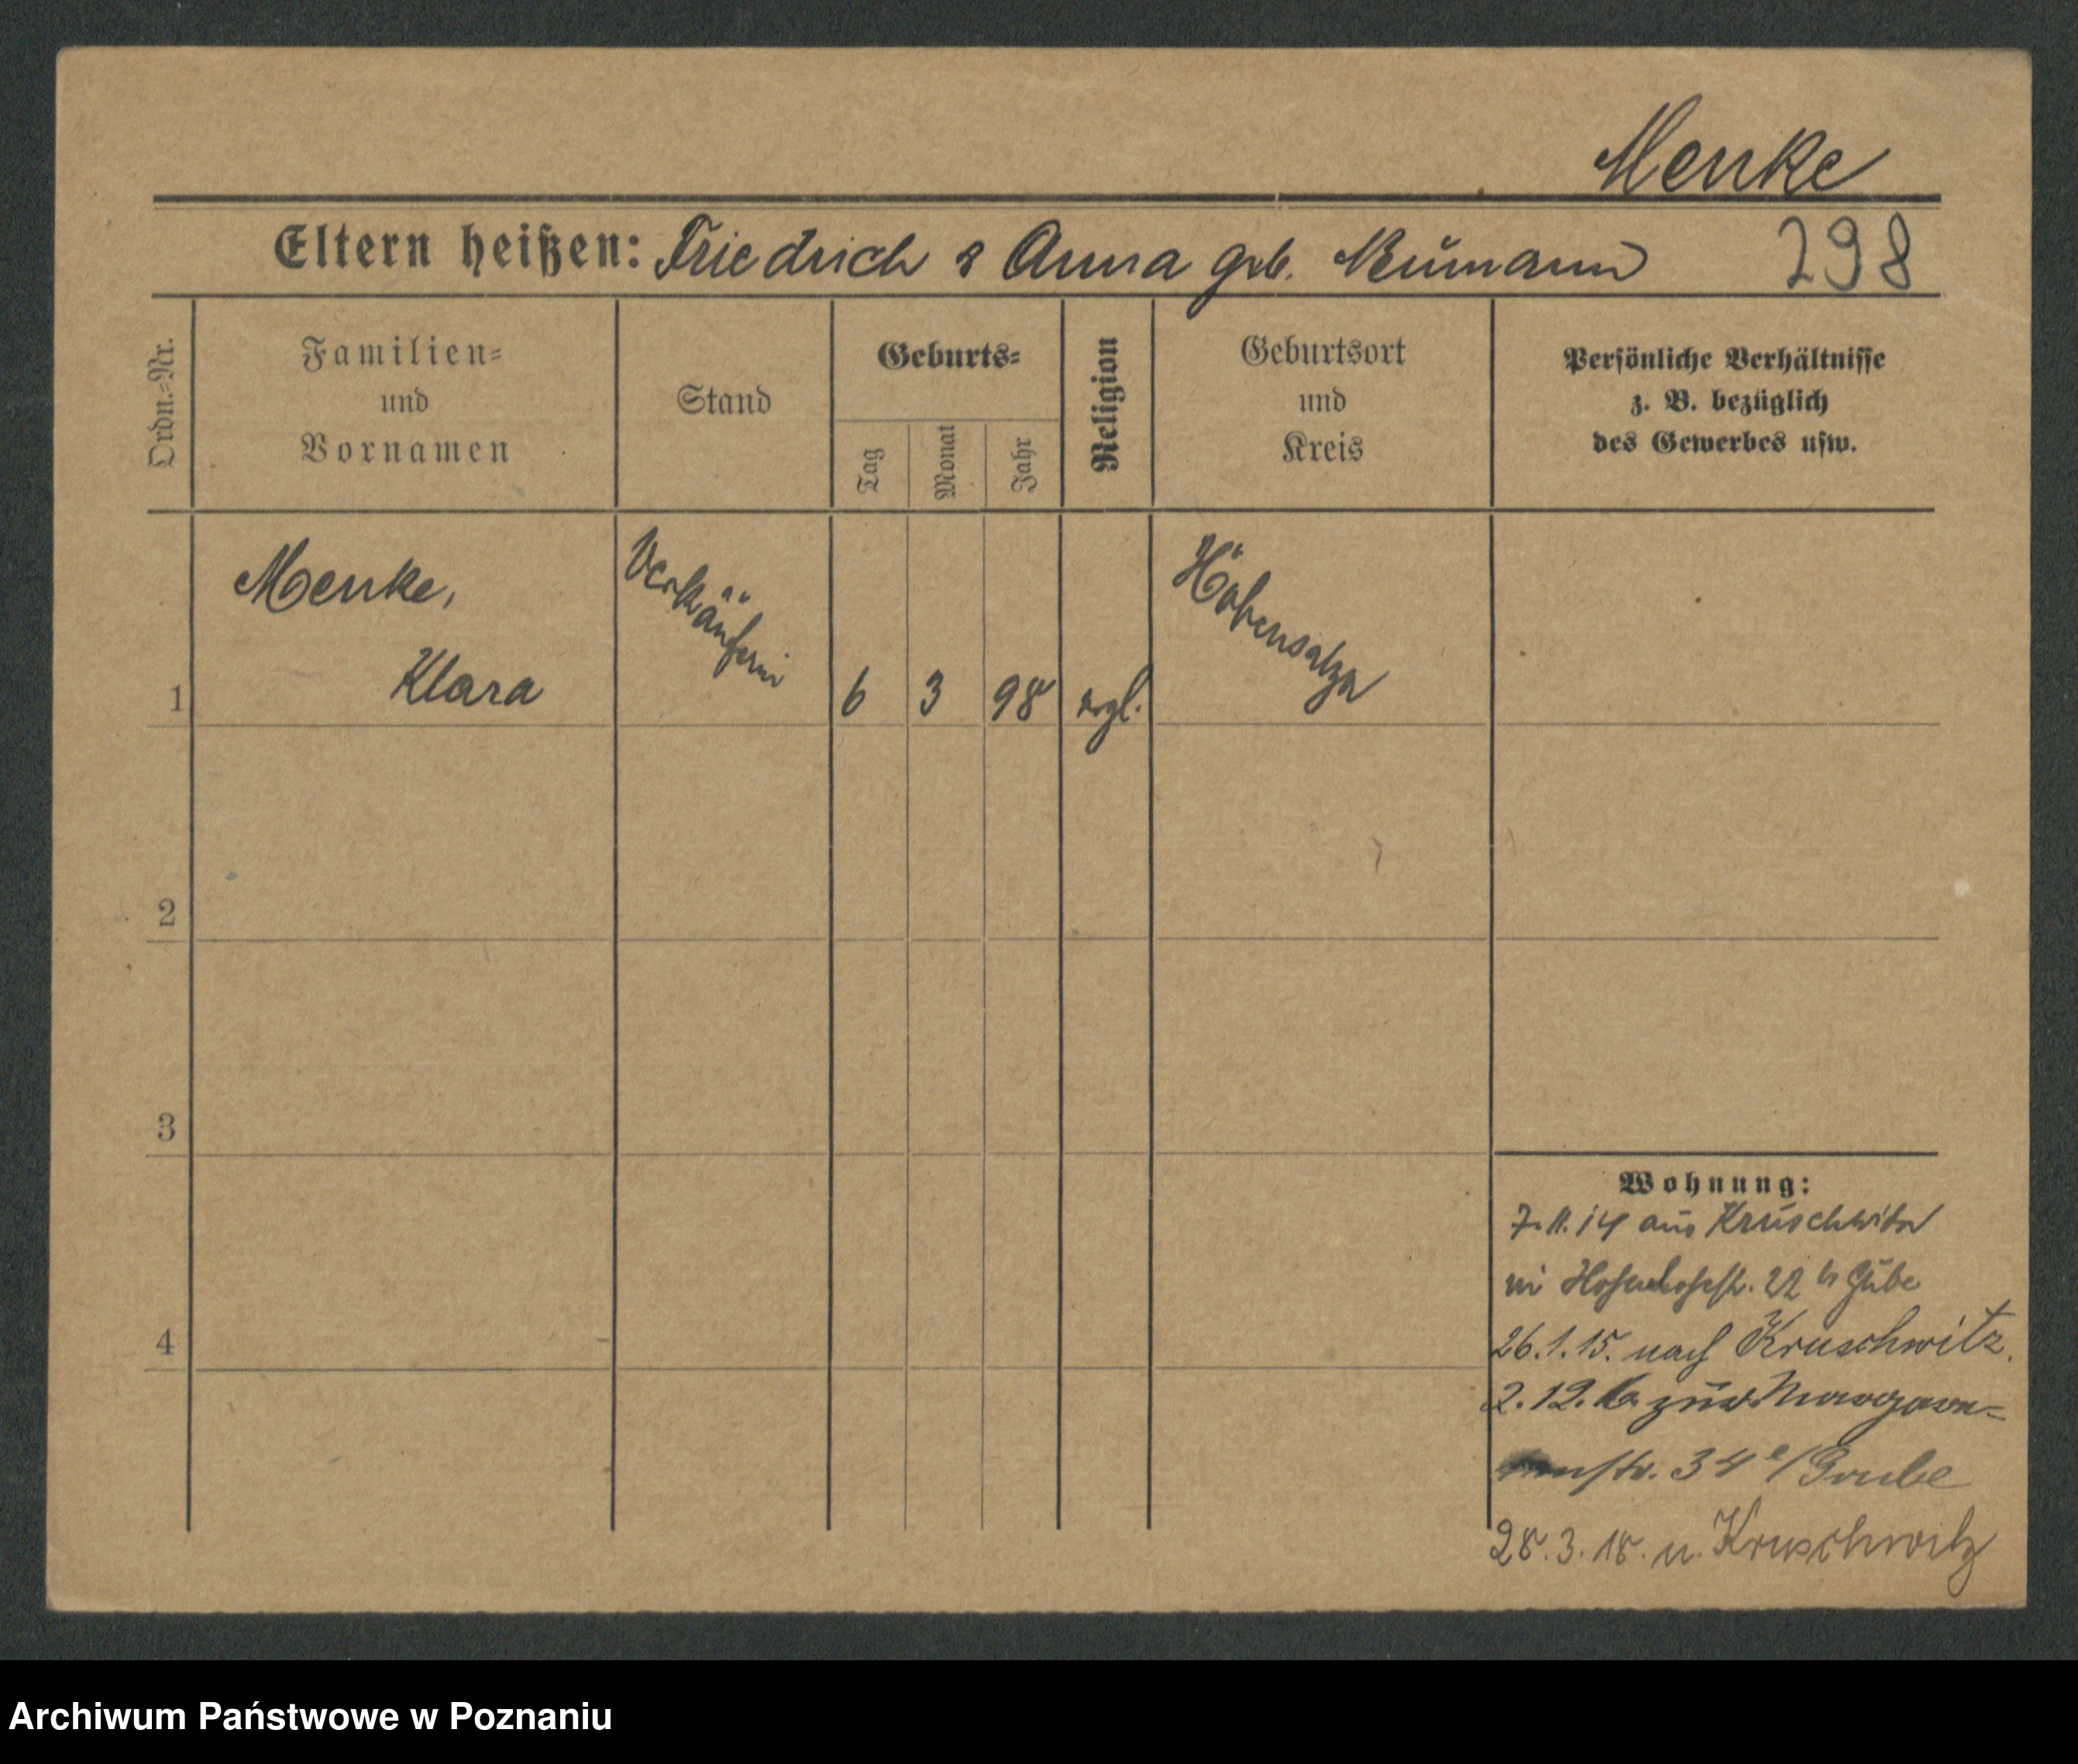 Menke
Eltern heißen: Friedrich & Anna geb. Neumann 298
Ordn.-Nr.
Familien-
und
Vornamen
Stand
Geburts-
Tag
Monat
Jahr
Religion
Geburtsort
und
Kreis
Persönliche Verhältnisse
z. B. bezüglich
des Gewerbes usw.
Menke,
Klara
Verkäuferin
6 3 98 evgl.
Hohensalza
1
2
3
4
Wohnung:
7.11.14 aus Kruschwitz
22
26.1.15. nach Kruschwitz.
2.12.
34
28.3.18. n. Kruschwitz
Archiwum Państwowe w Poznaniu